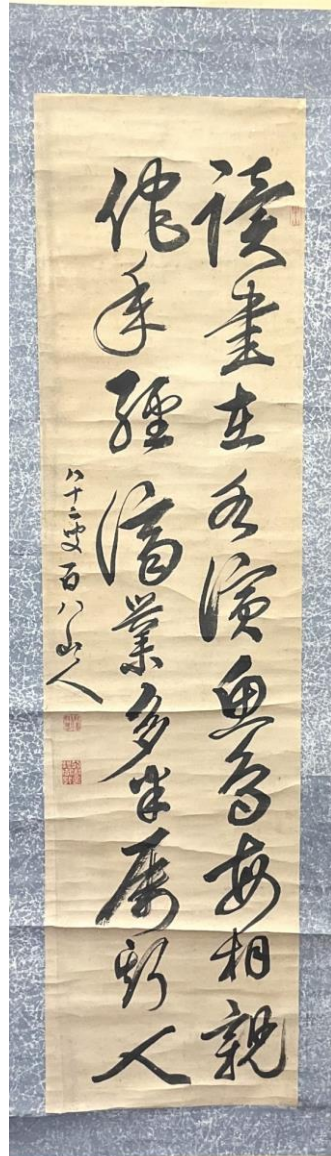 讀書在水濱魚鳥每相親
他年經濟業多半屬斯人
八十二叟百八山人